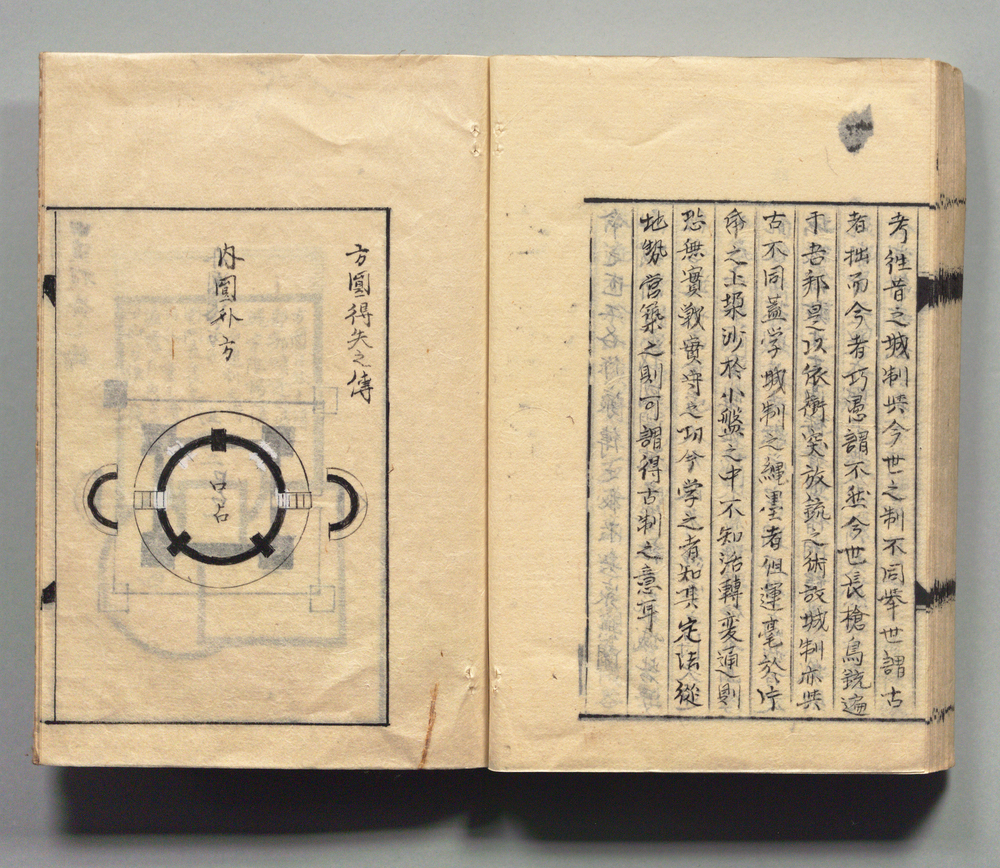 考往昔之城制與今世之制不同挙世謂古
者拙而今者巧愚謂不然今世長槍鳥銃遍
于吾邦是以依衝突放銃之術設城制亦與
古不同蓋学城制之縄墨者但運毫於片
帋之上築沙於小盤之中不知活轉変通則
恐無實戰實守之功今学之者知其定法從
地勢営築之則可謂得古制之意耳
方圓得失之傳
内圓外方